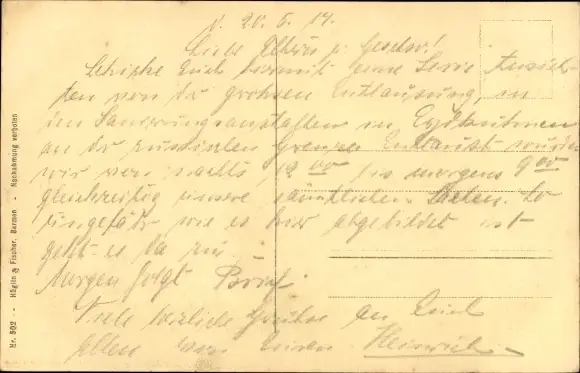 d. 20.6.17.
Liebe Eltern u. Geschw!
Schicke Euch hiermit eine Serie Ansich-
ten von der großen Entlausung, in
den Sanierungsanstalten in Eydtkuhnen
an der russischen Grenze. Entlaust wurden
wir von nachts 12 00 bis morgens 9 00
gleichzeitig unsere sämtlichen Sachen. So
ungefähr wie es hier abgebildet ist
geht es da zu.
Morgen folgt Brief.
Viele herzliche Grüße an Euch
Allen von Euren Heinrich
Nr. 502 - Häglin & Fischer, Barmen - Nachahmung verboten